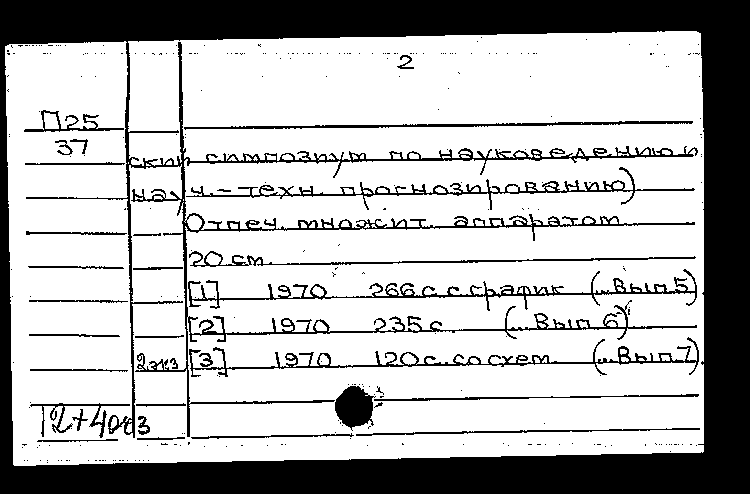 2
П25
37
ский симпозиум по науковедению и
науч.-техн. прогнозированию)
Отпеч. множит. аппаратом
20 см.
[1] 1970 266 с. с график (... Вып 5).
[2] 1970 235 с. (... Вып 6)
2 экз [3] 1970 120 с. со схем. (... Вып. 7).